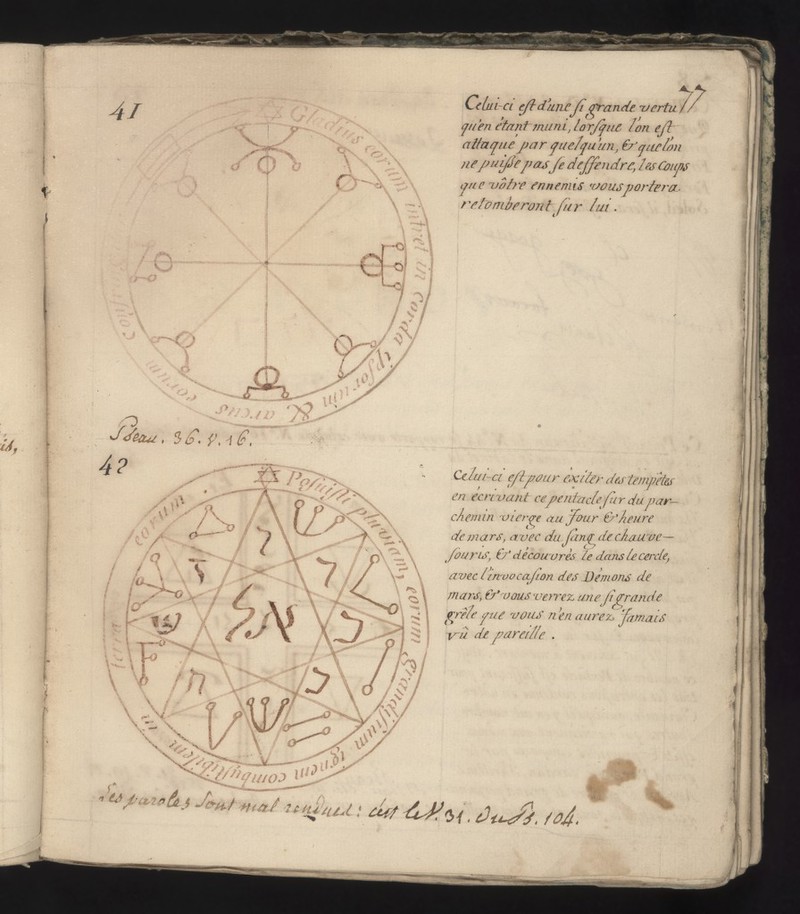 77
41
Gladius eorum intret in Corda ipsorum & arcus eorum
Celui-ci est d'une si grande vertu
qu'en étant muni, lorsque l'on est
attaqué par quelqu'un, & que l'on
ne puisse pas se deffendre, les Coups
que vôtre ennemis vous portera
retomberont sur lui.
Pseau. 36. v. 16.
42
Posuisti pluviam, eorum grandisium ignem combustibilem in terra eorum.
ד
ז
ר
אל
ש
כ
ח
כ
Celui-ci est pour éxiter des tempêtes
en écrivant ce pentacle sur du par-
chemin vierge au Jour & heure
de mars, avec du sang de chauve-
souris, & découvrés le dans le cercle,
avec l'invocasion des Démons de
mars, & vous verrez une si grande
grêle que vous n'en aurez Jamais
vû de pareille.
Les paroles sont mal rendues: c'est le V. 31. du Ps. 104.